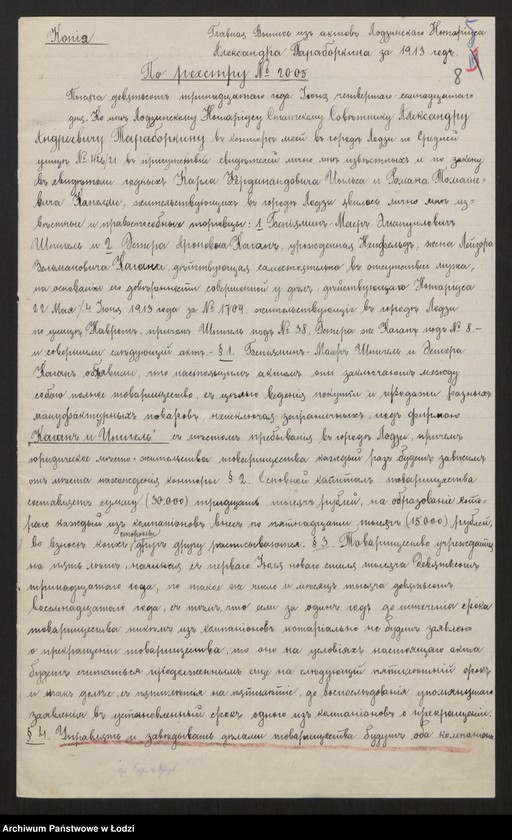 Копія
Главная Выпись изъ актовъ Лодзинскаго Нотаріуса
Александра Тараборкина за 1913 годъ.
8
По реестру № 2005
Тысяча девятьсотъ тринадцатаго года Іюня четвертаго-семнадцатаго
дня. Ко мнѣ Лодзинскому Нотаріусу Статскому Совѣтнику Александру
Андреевичу Тараборкину въ контору мою въ городѣ Лодзи по Средней
улицѣ № въ присутствіи свидѣтелей мнѣ извѣстныхъ и по закону
въ свидѣтели годныхъ Карла Фердинандовича и Романа Томаше-
вича жительствующихъ въ городѣ Лодзи явились лично мнѣ из-
вѣстные и правоспособные торговцы: 1 Беніяминъ-Мееръ Шмуловичъ
Шпигель и 2 Эстера Ароновна Каганъ, урожденная жена Лейзора
Зельмановича Кагана, дѣйствующая самостоятельно въ отсутствіи мужа,
на основаніи его довѣренности совершенной у дѣл. дѣйствующаго Нотаріуса
22 Мая/4 Іюня 1913 года за № 1709, жительствующіе въ городѣ Лодзи
по улицѣ Навротъ, причемъ Шпигель подъ № 38, Эстера же Каганъ подъ № 8.-
и совершили слѣдующій актъ.- § 1. Беніяминъ-Мееръ Шпигель и Эстера
Каганъ объявили, что настоящимъ актомъ они заключаютъ между
собою полное товарищество, съ цѣлью веденія покупки и продажи разныхъ
мануфактурныхъ товаровъ, неисключая заграничныхъ, подъ фирмою
„Каганъ и Шпигель" съ мѣстомъ пребыванія въ городѣ Лодзи, причемъ
юридическое мѣсто-жительства товарищества каждый разъ будетъ зависѣть
отъ мѣста нахожденія конторы § 2. Основной капиталъ товарищества
составляетъ сумму (30.000) тридцать тысячъ рублей, на образованіе кото-
раго каждый изъ компаніоновъ внесъ по пятнадцати тысячъ (15.000) рублей,
во взносѣ коихъ стороны другъ другу расписываются. § 3. Товарищество учреждается
на пять лѣтъ начиная съ перваго Іюля новаго стиля тысяча девятьсотъ
тринадцатаго года, по такое же число и мѣсяцъ тысяча девятьсотъ
восемнадцатаго года, съ тѣмъ, что если за одинъ годъ до истеченія срока
товарищества никѣмъ изъ компаніоновъ нотаріально не будетъ заявлено
о прекращеніи товарищества, то оно на условіяхъ настоящаго акта
будетъ считаться продолженнымъ еще на слѣдующій пятилѣтній срокъ
и такъ далѣе съ пятилѣтія на пятилѣтіе, до воспослѣдованія упомянутаго
заявленія въ установленный срокъ одного изъ компаніоновъ о прекращеніи.
§ 4. Управлять и завѣдывать дѣлами товарищества будутъ оба компаніона
Archiwum Państwowe w Łodzi